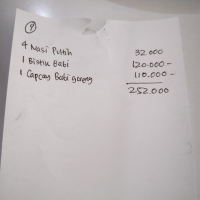 9
4 Nasi Putih 32.000
1 Bistik Babi 120.000 -
1 Capcay Babi goreng 110.000 -
252.000